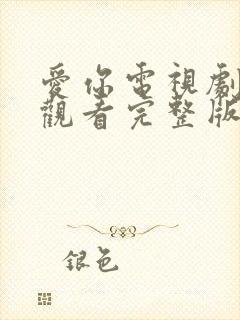 愛你電視劇
觀看完整版
銀色